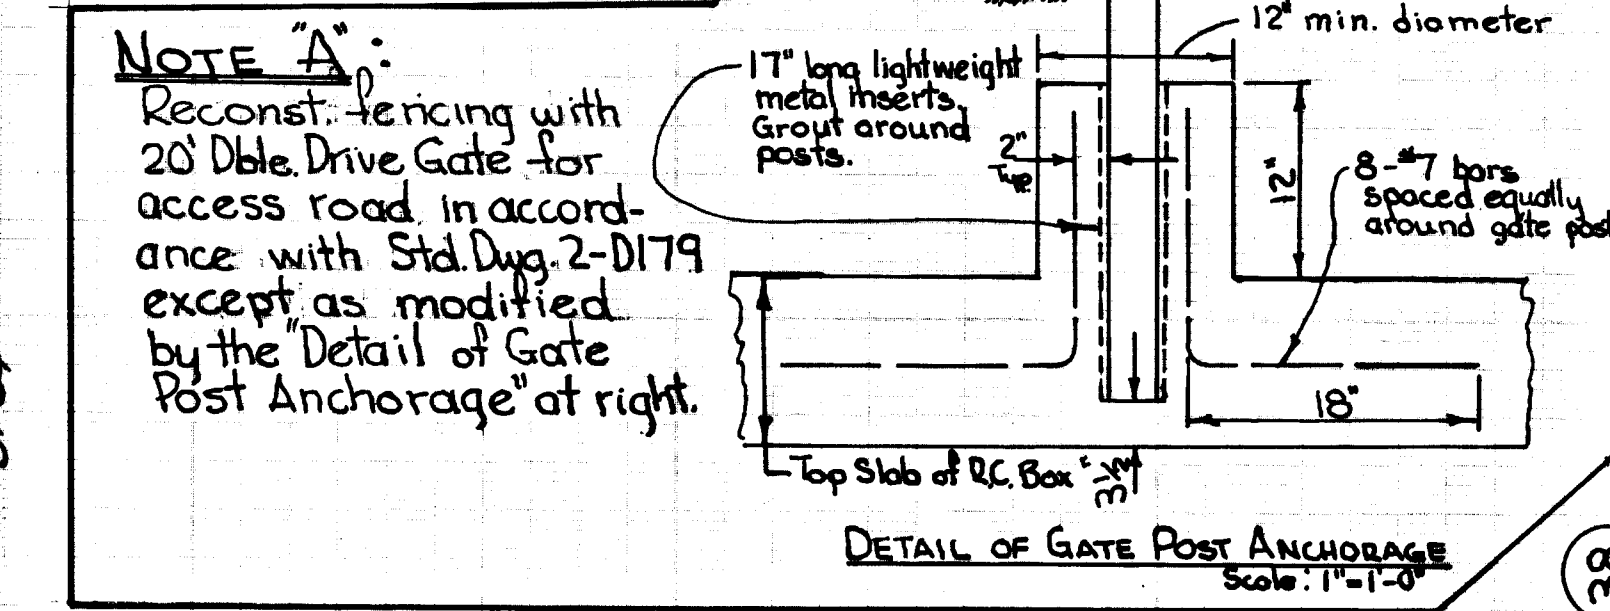 NOTE "A":
Reconst. fencing with
20' Dble. Drive Gate for
access road in accord-
ance with Std. Dwg. 2-D179
except as modified
by the "Detail of Gate
Post Anchorage" at right.
12" min. diameter
17" long lightweight
metal inserts.
Grout around
posts.
2"
Typ.
12"
8-#7 bars
spaced equally
around gate post
18"
Top Slab of R.C. Box
3½"
DETAIL OF GATE POST ANCHORAGE
Scale: 1"=1'-0"